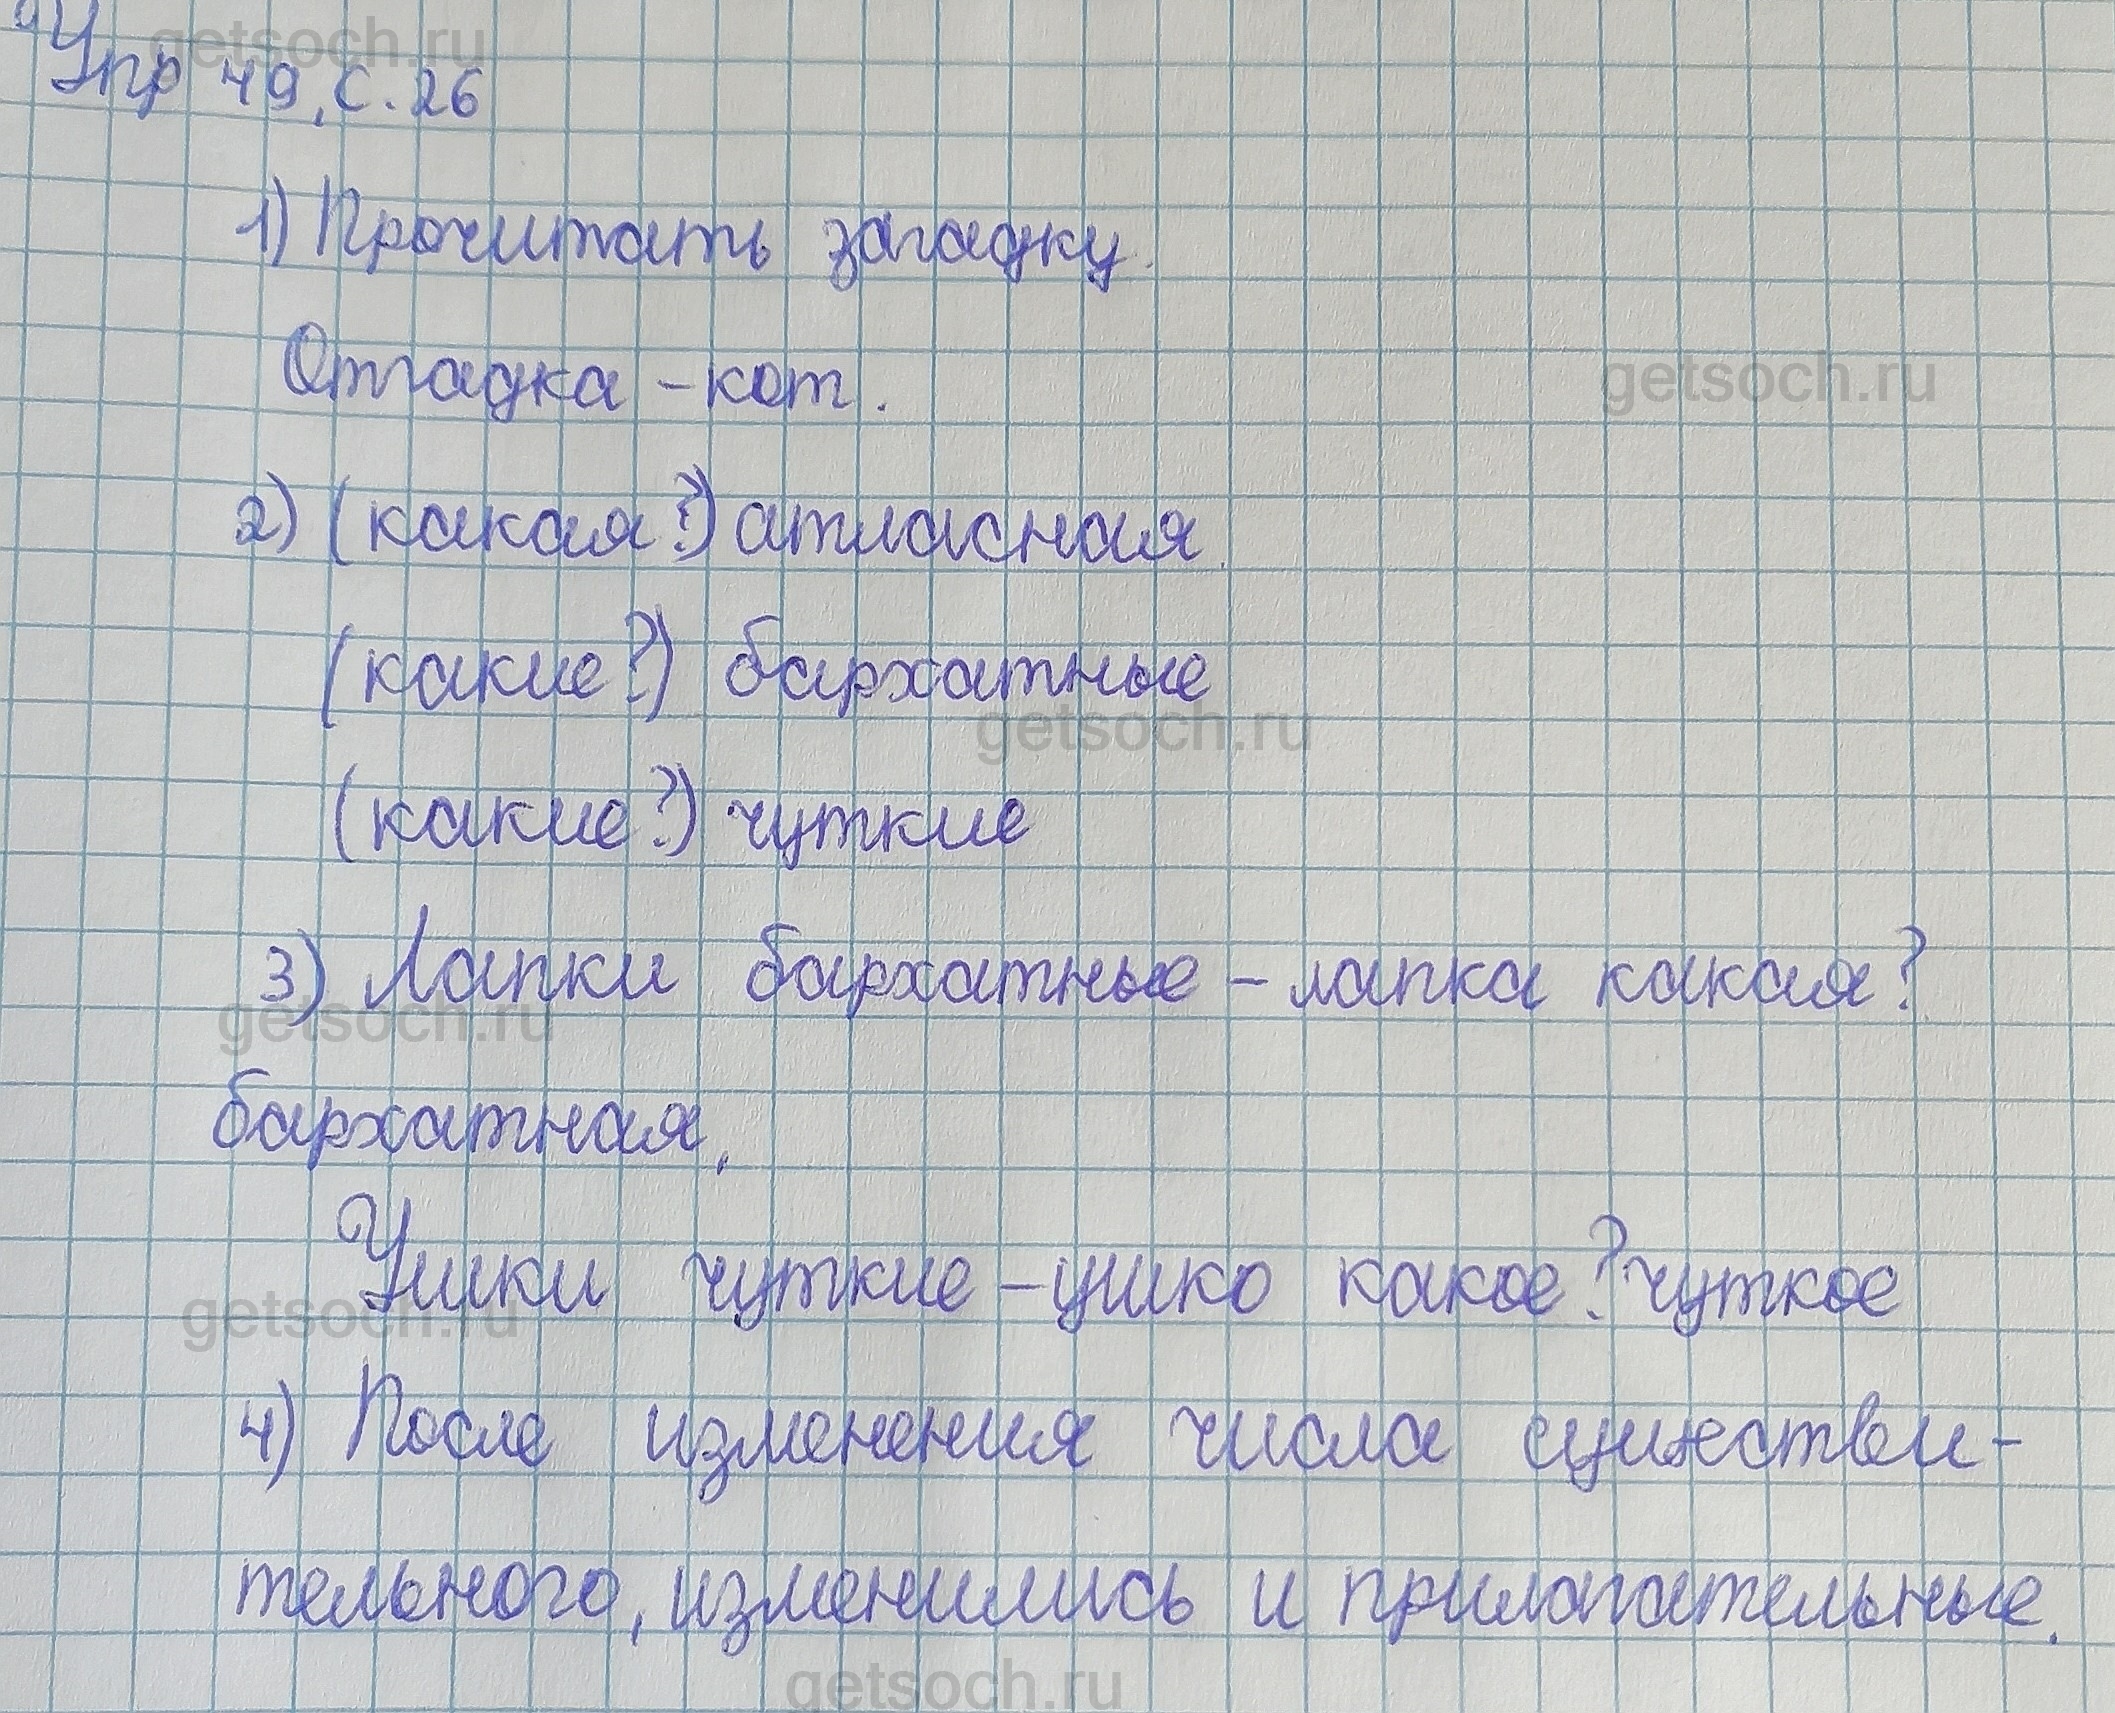 getsoch.ru
Упр 49, с. 26
1) Прочитать загадку.
Отгадка - кот.
getsoch.ru
2) (какая?) атласная.
(какие?) бархатные
getsoch.ru
(какие?) чуткие
3) Лапки бархатные - лапка какая?
getsoch.ru
бархатная.
Ушки чуткие - ушко какое? чуткое
getsoch.ru
4) После изменения числа существи-
тельного, изменились и прилагательные.
getsoch.ru